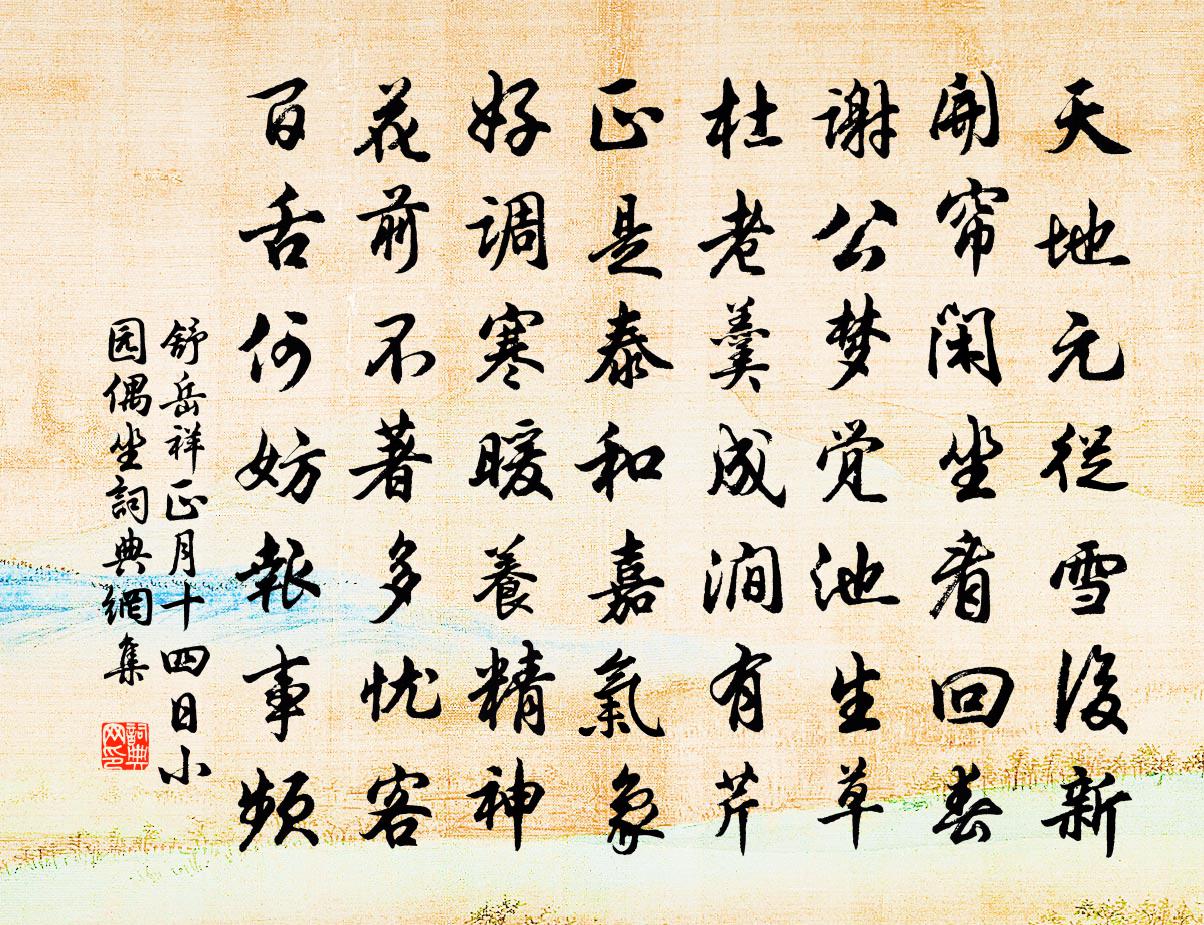 天地元從雪後新
開帘閑坐看回春
谢公梦觉池生草
杜老羹成涧有芹
正是泰和嘉氣象
好调寒暖養精神
花前不著多忧客
百舌何妨報事頻
舒岳祥正月十四日小
园偶坐詞典網集
詞典
网印